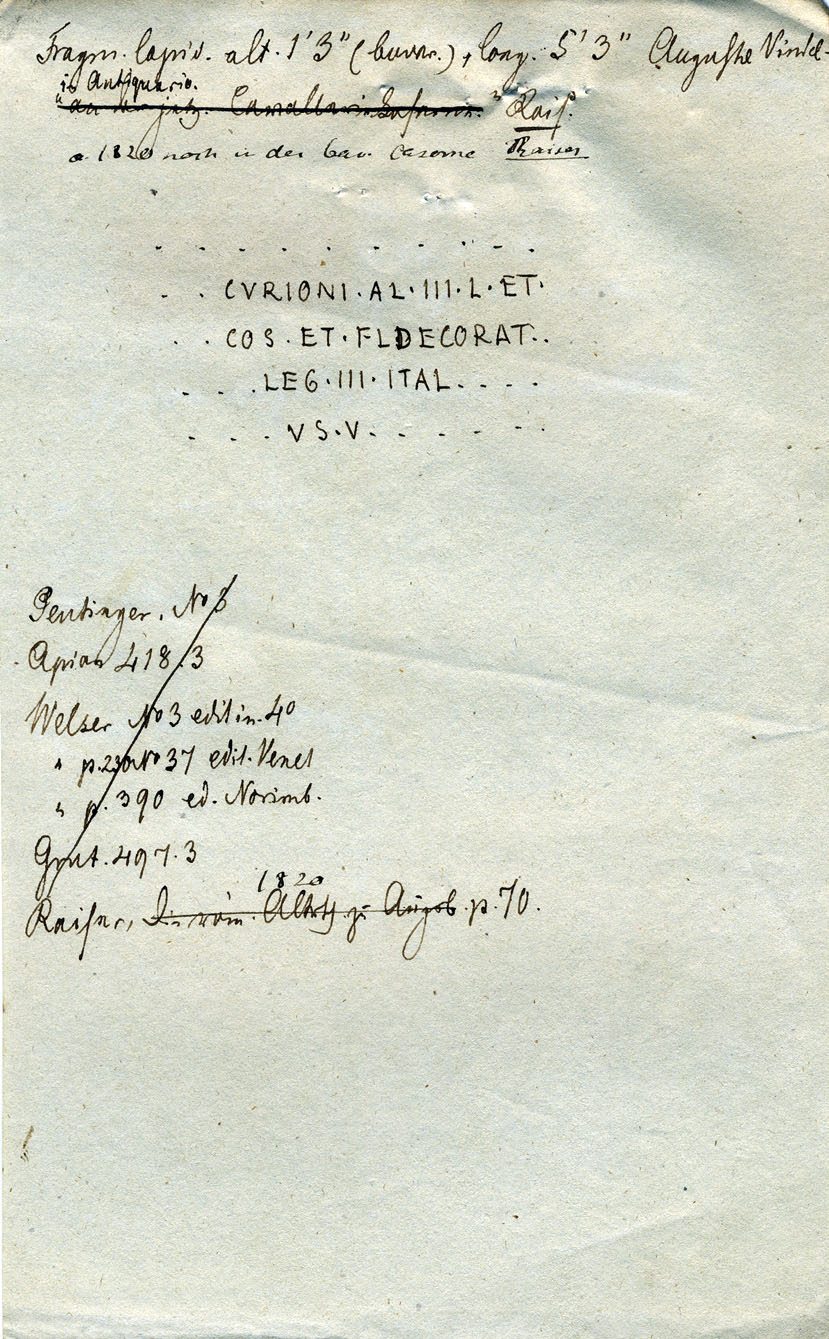 Fragm. lapid. alt. 1' 3" (bavar.), long. 5' 3" Auguste Vindel-
in Antiquario.
"an der jetz. Cavallerie Caserne." Rais.
a 1820 noch in der bav. Caserne Raiser
. . . . . . . . .
. . CVRIONI . AL . III . L . ET .
. . COS . ET . FL DECORAT . .
. . . LEG . III . ITAL . . . .
. . . V S . V . . . . . .
Peutinger. No 3
Apian 418.3
Welser No 3 edit in. 4o
" p. 230 No 37 edit. Venet
" p. 390 ed. Norimb.
Grut. 497.3
1820
Raiser, Die röm. Alterth zu Augsb. p. 70.